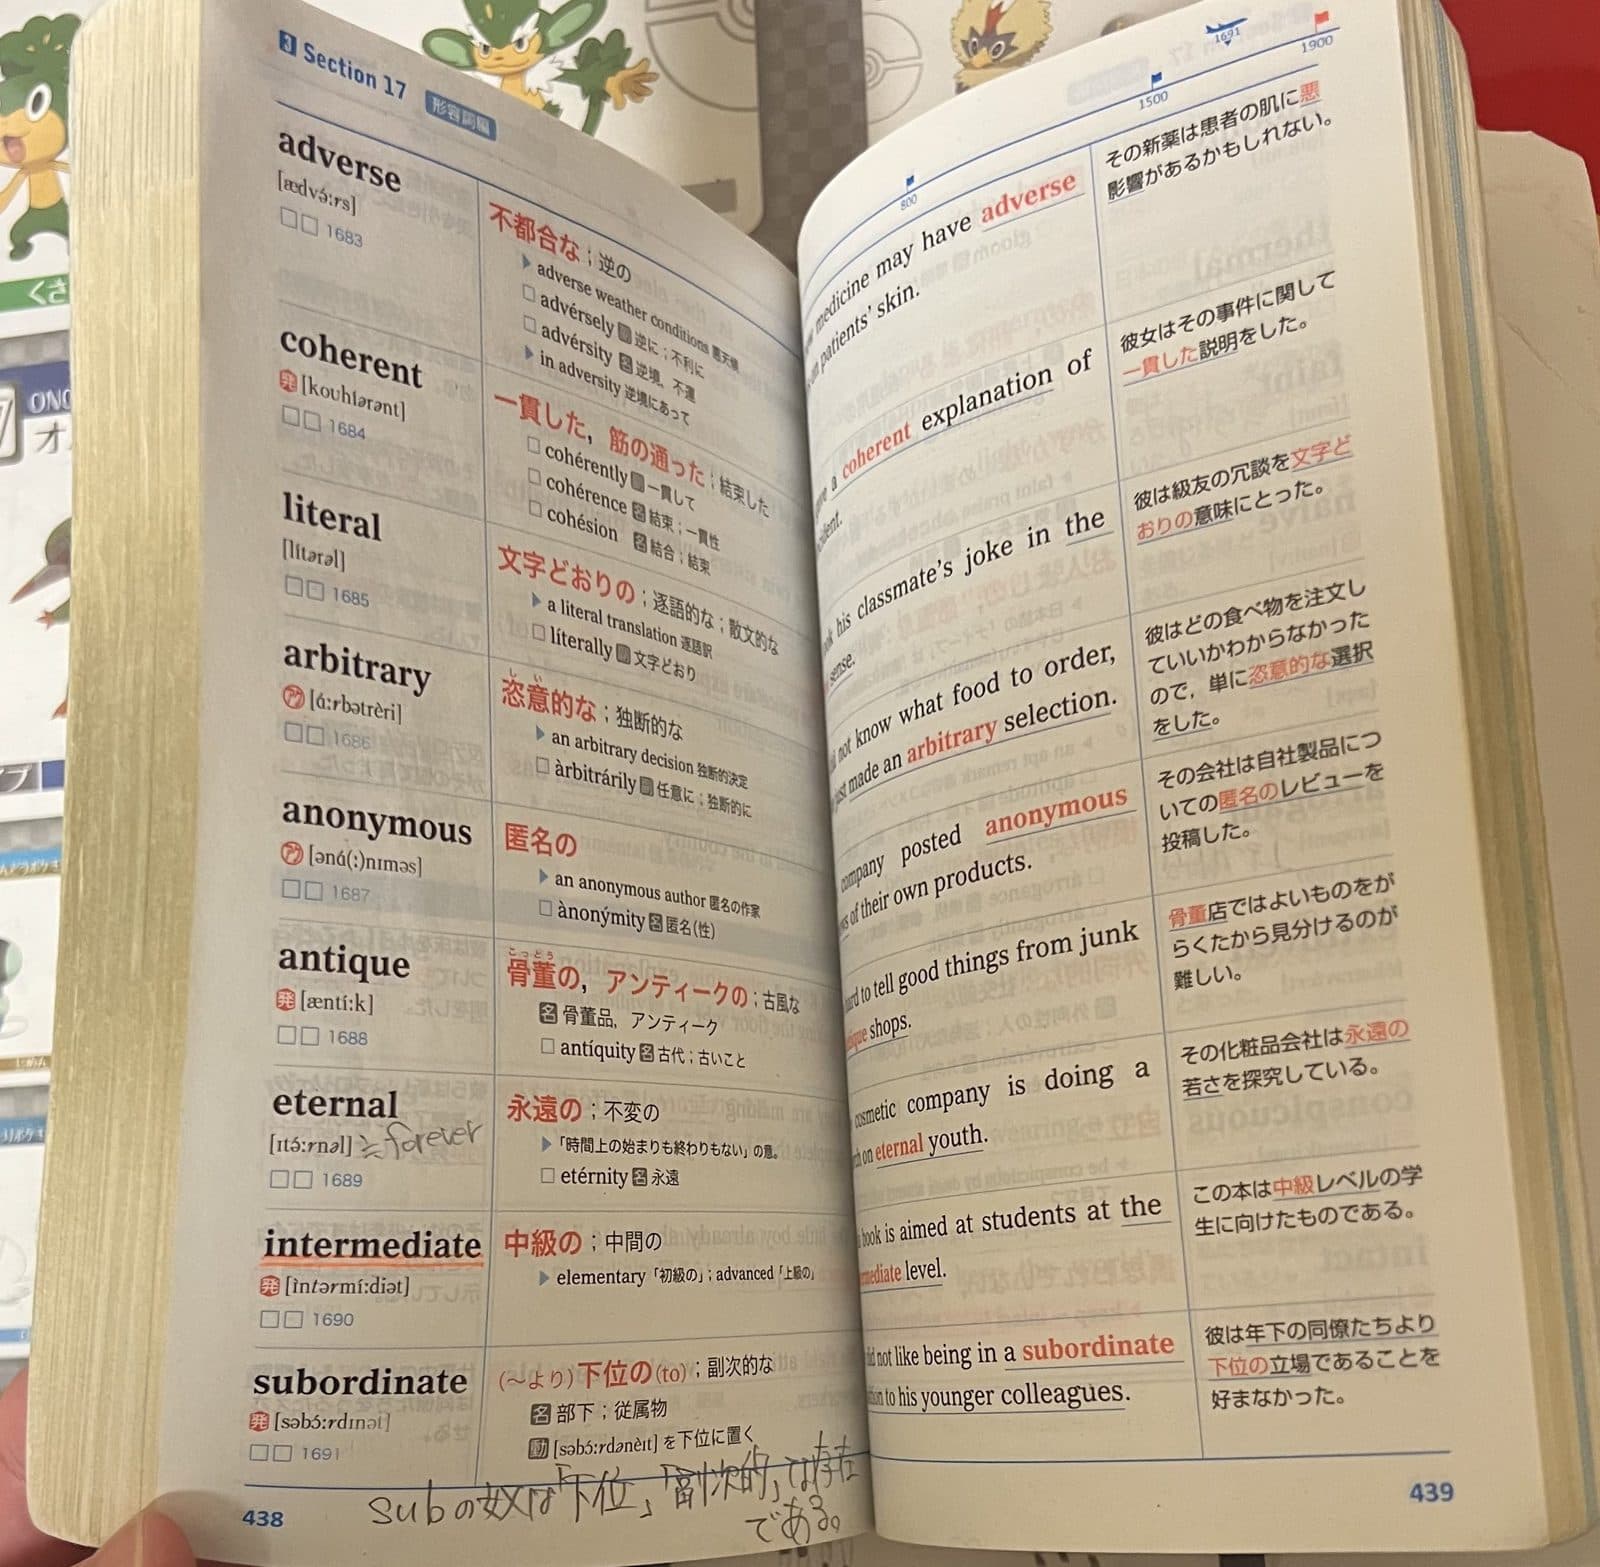 3 Section 17 形容詞編
adverse
[ædvə́ːrs]
□□ 1683
不都合な；逆の
▶ adverse weather conditions 悪天候
□ advérsely 副 逆に；不利に
□ advérsity 名 逆境，不運
▶ in adversity 逆境にあって
coherent
発 [kouhíərənt]
□□ 1684
一貫した，筋の通った；結束した
□ cohérently 副 一貫して
□ cohérence 名 結束；一貫性
□ cohésion 名 結合；結束
literal
[lítərəl]
□□ 1685
文字どおりの；逐語的な；散文的な
▶ a literal translation 逐語訳
□ líterally 副 文字どおり
arbitrary
ア [áːrbətrèri]
□□ 1686
しい
恣意的な；独断的な
▶ an arbitrary decision 独断的決定
□ àrbitrárily 副 任意に；独断的に
anonymous
ア [əná(ː)nɪməs]
□□ 1687
匿名の
▶ an anonymous author 匿名の作家
□ ànonýmity 名 匿名(性)
antique
発 [æntíːk]
□□ 1688
こっとう
骨董の，アンティークの；古風な
名 骨董品，アンティーク
□ antíquity 名 古代；古いこと
eternal
[ɪtə́ːrnəl] ≒forever
□□ 1689
永遠の；不変の
▶「時間上の始まりも終わりもない」の意。
□ etérnity 名 永遠
intermediate
発 [ìntərmíːdiət]
□□ 1690
中級の；中間の
▶ elementary「初級の」；advanced「上級の」
subordinate
発 [səbɔ́ːrdɪnət]
□□ 1691
(〜より)下位の(to)；副次的な
名 部下；従属物
動 [səbɔ́ːrdənèɪt] を下位に置く
subの奴は「下位」「副次的」な存在
である。
438
800
1500
1691
1900
medicine may have adverse
patients' skin.
その新薬は患者の肌に悪
影響があるかもしれない。
a coherent explanation of
彼女はその事件に関して
一貫した説明をした。
his classmate's joke in the
sense.
彼は級友の冗談を文字ど
おりの意味にとった。
not know what food to order,
just made an arbitrary selection.
彼はどの食べ物を注文し
ていいかわからなかった
ので，単に恣意的な選択
をした。
company posted anonymous
of their own products.
その会社は自社製品につ
いての匿名のレビューを
投稿した。
to tell good things from junk
shops.
骨董店ではよいものをが
らくたから見分けるのが
難しい。
cosmetic company is doing a
on eternal youth.
その化粧品会社は永遠の
若さを探究している。
book is aimed at students at the
level.
この本は中級レベルの学
生に向けたものである。
not like being in a subordinate
to his younger colleagues.
彼は年下の同僚たちより
下位の立場であることを
好まなかった。
439